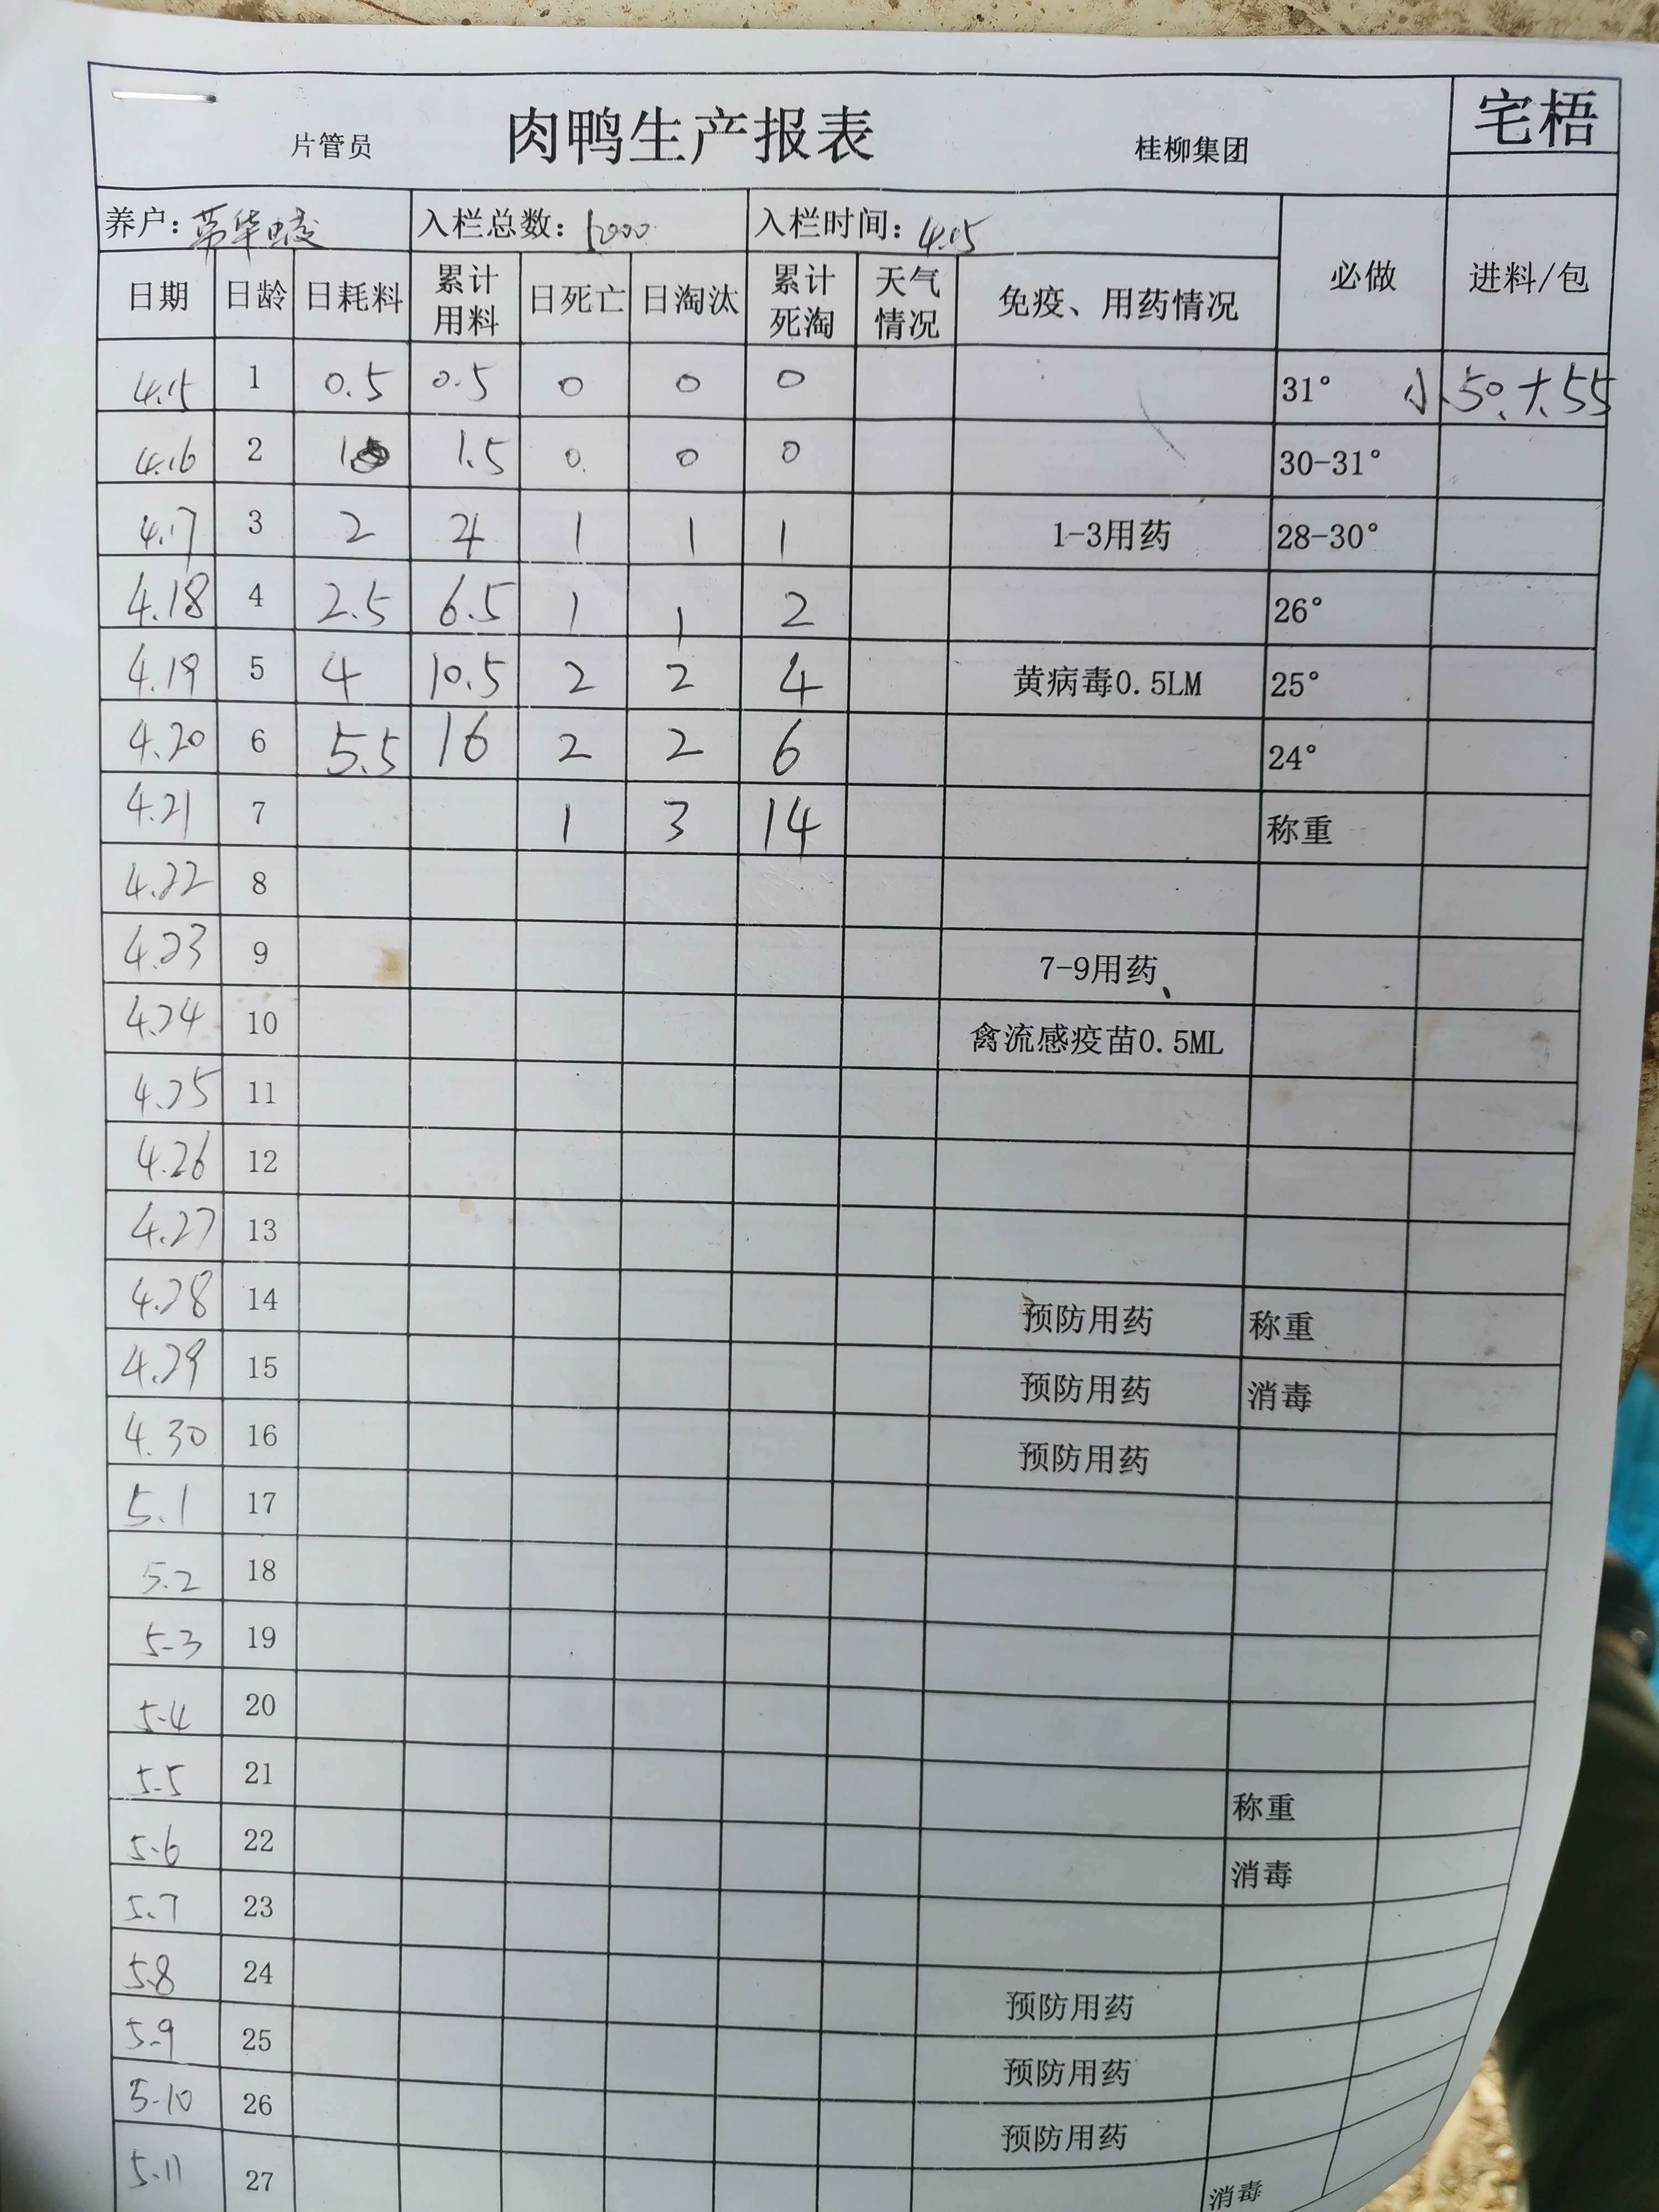 宅梧
片管员 肉鸭生产报表 桂柳集团
养户: 入栏总数: 5000 入栏时间: 4.15
日期 日龄 日耗料 累计用料 日死亡 日淘汰 累计死淘 天气情况 免疫、用药情况 必做 进料/包
4.15 1 0.5 0.5 0 0 0 31° 小50.大.55
4.16 2 1 1.5 0. 0 0 30-31°
4.17 3 2 4 1 1 1 1-3用药 28-30°
4.18 4 2.5 6.5 1 1 2 26°
4.19 5 4 10.5 2 2 4 黄病毒0.5LM 25°
4.20 6 5.5 16 2 2 6 24°
4.21 7 1 3 14 称重
4.22 8
4.23 9 7-9用药、
4.24 10 禽流感疫苗0.5ML
4.25 11
4.26 12
4.27 13
4.28 14 预防用药 称重
4.29 15 预防用药 消毒
4.30 16 预防用药
5.1 17
5.2 18
5-3 19
5-4 20
5-5 21 称重
5-6 22 消毒
5.7 23
5.8 24 预防用药
5-9 25 预防用药
5-10 26 预防用药
5.11 27 消毒